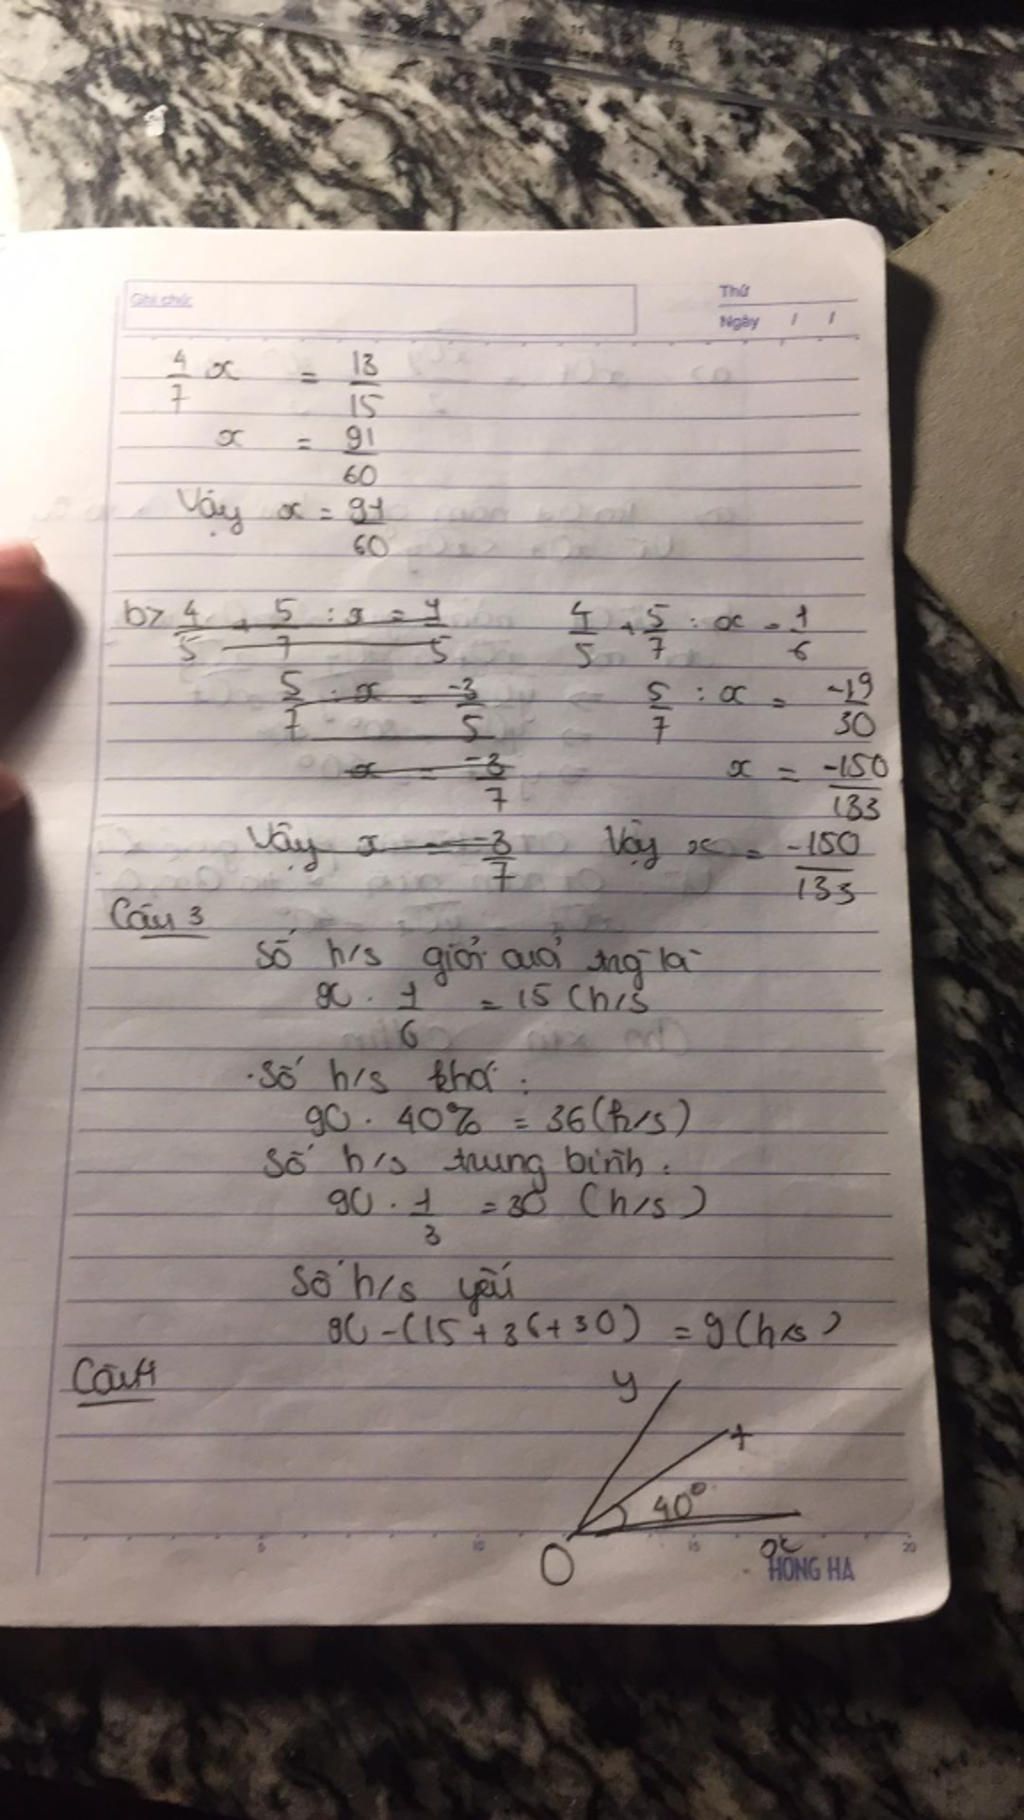 Ghi chú:
Thứ
Ngày / /
4/7 x = 13/15
x = 91/60
Vậy x = 91/60
b> 4/5 + 5/7 : x = 1/5
5/7 : x = -3/5
x = -3/7
Vậy x = -3/7
4/5 + 5/7 : x = 1/6
5/7 : x = -19/30
x = -150/133
Vậy x = -150/133
Câu 3
Số h/s giỏi là
90 . 1/6 = 15 (h/s
Số h/s khá :
90 . 40% = 36 (h/s)
Số h/s trung bình :
90 . 1/3 = 30 (h/s)
Số h/s yếu
90 - (15 + 36 + 30) = 9 (h/s)
Câu 4
y
t
40°
O
x
5 10 15 20
HONG HA